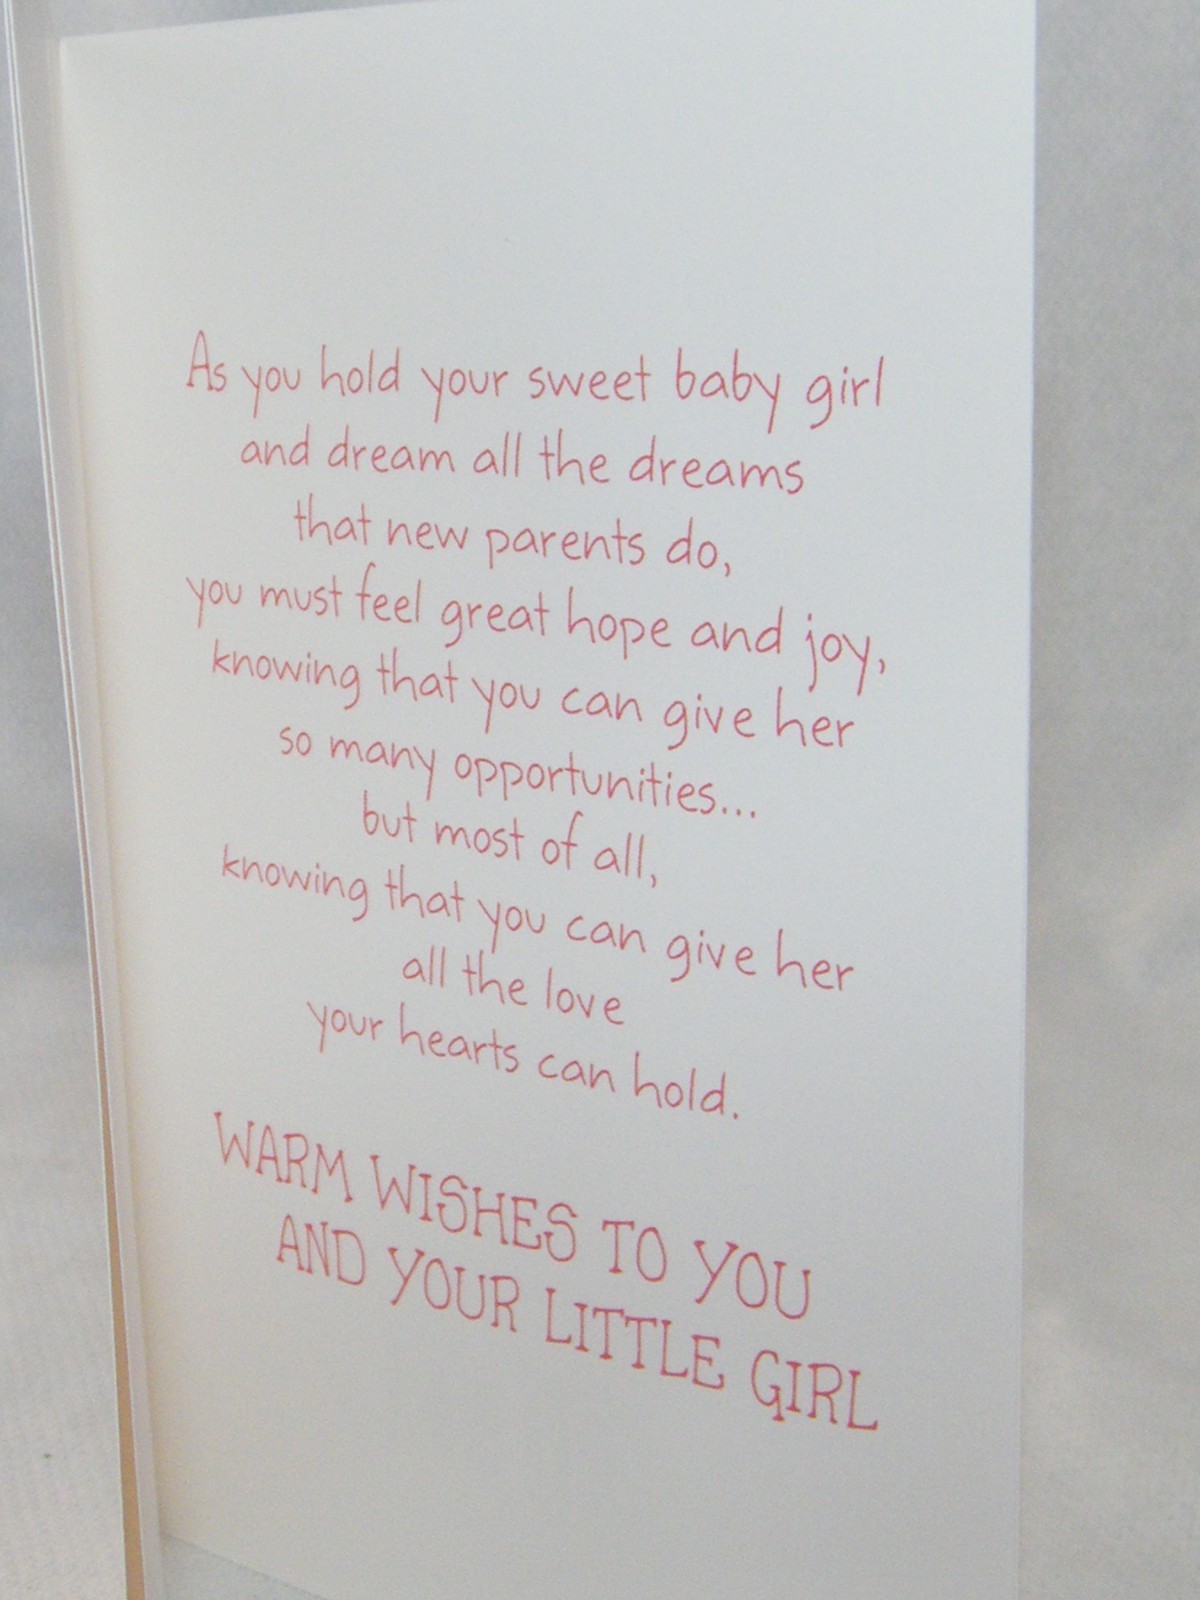 As you hold your sweet baby girl
and dream all the dreams
that new parents do,
you must feel great hope and joy,
knowing that you can give her
so many opportunities...
but most of all,
knowing that you can give her
all the love
your hearts can hold.
WARM WISHES TO YOU
AND YOUR LITTLE GIRL